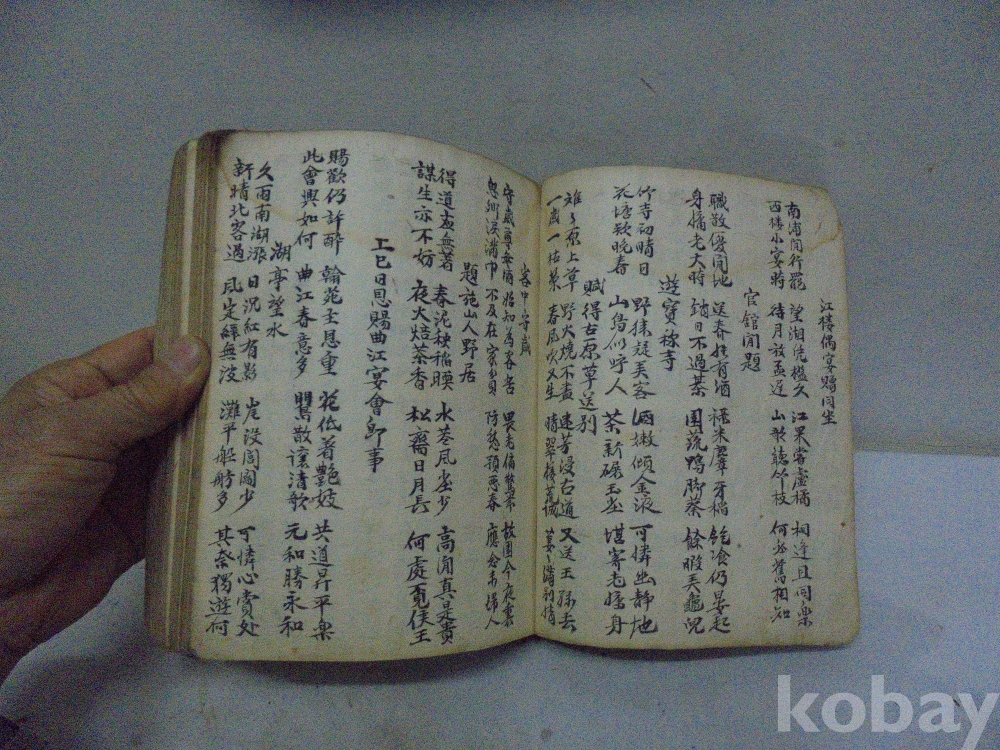 江樓偶宴贈同坐
南浦閒行罷 望湘凭檻久 江果嘗盧橘 相逢且同樂
西樓小宴時 待月放盃遲 山歌聽竹枝 何必舊相知
官舘閒題
職散優閒地 送春唯有酒 祿米麞牙稻 飽飡仍晏起
身慵老大時 銷日不過棊 園蔬鴨脚葵 餘暇弄龜兒
遊寶稱寺
竹寺初晴日 野猿疑弄客 酒嫩傾金液 可憐幽靜地
花塘欲晚春 山鳥似呼人 茶新碾玉塵 堪寄老慵身
賦得古原草送別
離々原上草 野火燒不盡 遠芳侵古道 又送王孫去
一歲一枯榮 春風吹又生 晴翠接荒城 萋々滿別情
客中守歲
守歲尊無酒 始知為客苦 畏老偏驚節 故園今夜裏
思鄉淚滿巾 不及在家貧 防愁預惡春 應念未歸人
題施山人野居
得道應無著 春泥秧稻暖 水巷風塵少 高閒真是貴
謀生亦不妨 夜火焙茶香 松齋日月長 何處覓侯王
上巳日恩賜曲江宴會即事
賜歡仍許醉 翰苑主恩重 花低著艷妓 共道昇平樂
此會興如何 曲江春意多 鶯散讓清歌 元和勝永和
湖亭望水
久雨南湖漲 日沉紅有影 岸沒閭閻少 可憐心賞处
新晴北客過 風定綠無波 灘平船舫多 其奈獨遊何
kobay